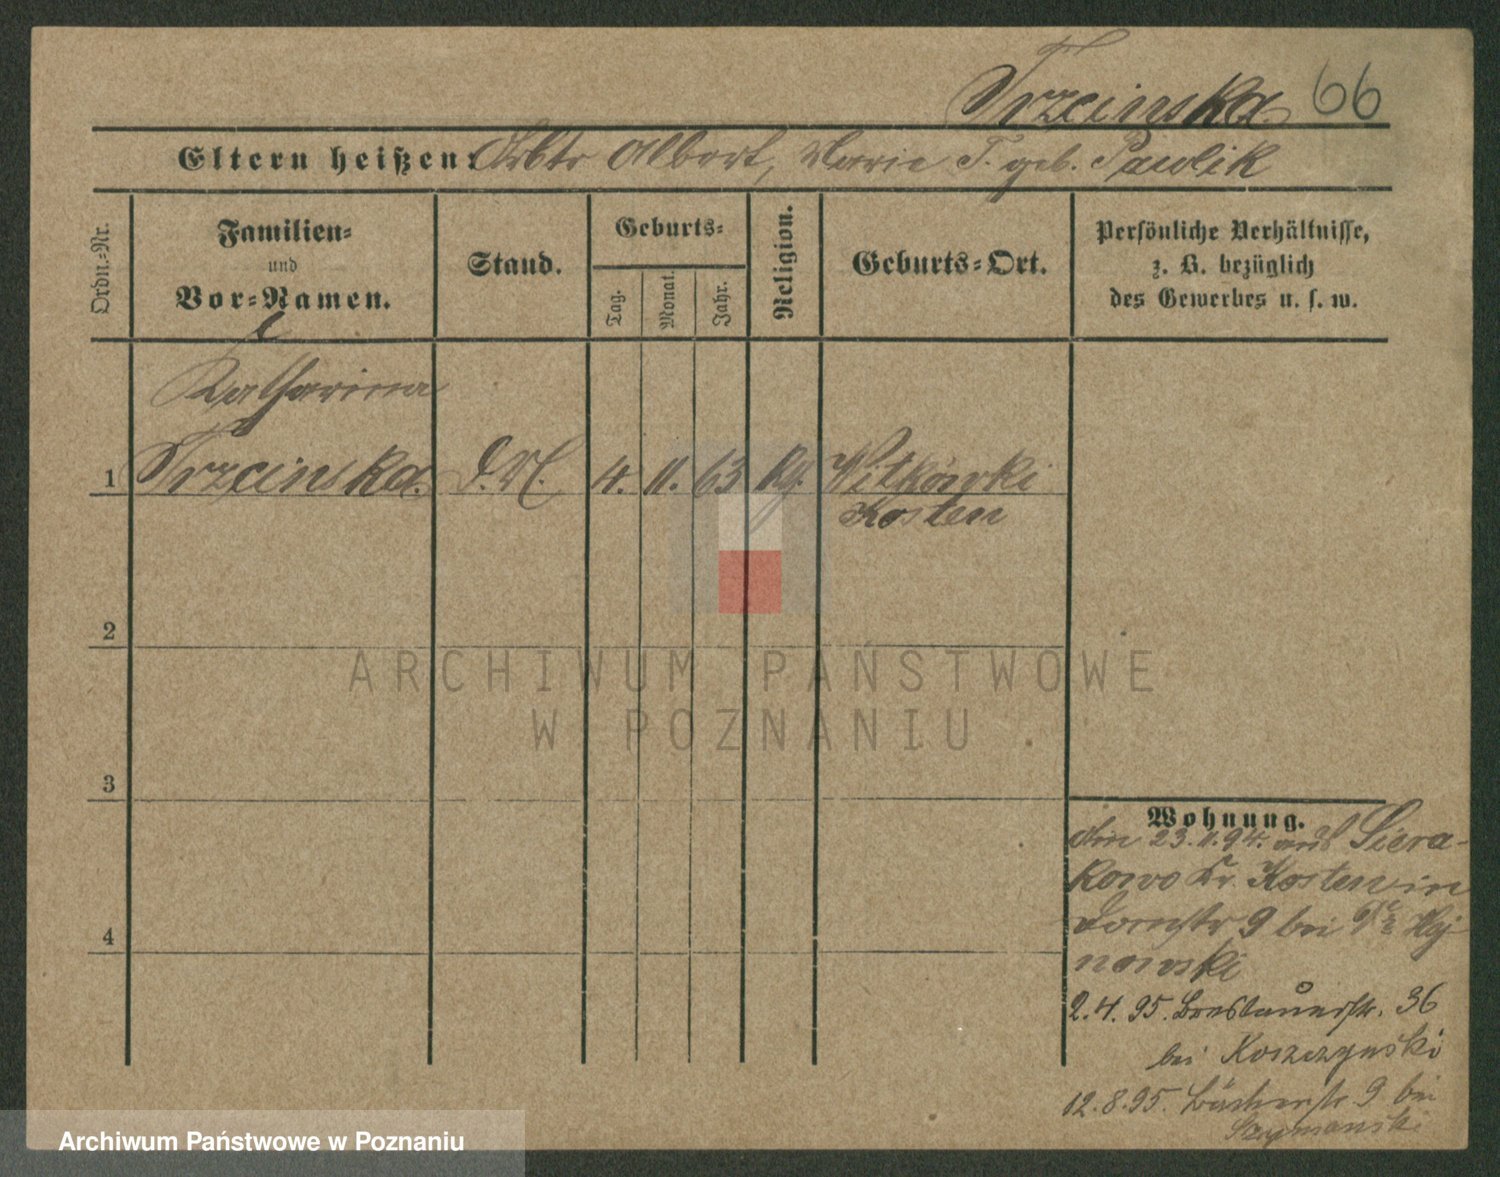 Trzcinska. 66
Eltern heißen: Arbtr Albert, Marie T. geb. Pawlik
Ordn.-Nr.
Familien-
und
Vor-Namen.
Stand.
Geburts-
Tag.
Monat.
Jahr.
Religion.
Geburts-Ort.
Persönliche Verhältnisse,
z. B. bezüglich
des Gewerbes u. s. w.
Katharina
1 Trzcinska. D.M. 4. 11. 63 kg. Witkówki
Kosten
2
3
4
Wohnung.
Am 23.11.94. aus Siera-
kowo Kr. Kosten in
Domstr 9 bei
nowski
2.4.95. Breslauerstr. 36
bei Koszczynski
12.8.95. 9 bei
Szymanski
ARCHIWUM PAŃSTWOWE
W POZNANIU
Archiwum Państwowe w Poznaniu